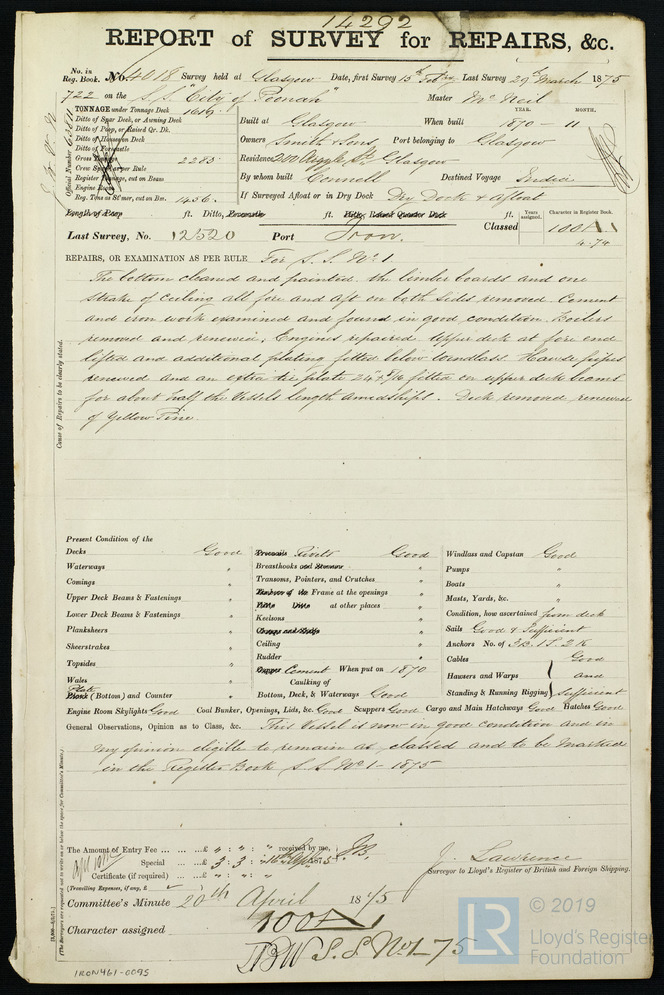 14292
REPORT of SURVEY for REPAIRS, &c.
No. in Reg. Book. No. 4018 Survey held at Glasgow Date, first Survey 15th Last Survey 29th March 1875
722 on the S.S. "City of Poonah" Master McNeil
TONNAGE under Tonnage Deck 1619
Ditto of Spar Deck, or Awning Deck
Ditto of Poop, or Raised Qr. Dk.
Ditto of House on Deck
Ditto of Forecastle
Gross Tonnage 2285
Crew Space per Rule
Register Tonnage, cut on Beam
Engine Room
Reg. Tons as St'mer, cut on Bm. 1456
Official Number
YEAR. MONTH.
Built at Glasgow When built 1870 - 11
Owners Smith & Sons Port belonging to Glasgow
Residence 200 Argyle St Glasgow
By whom built Connell Destined Voyage India
If Surveyed Afloat or in Dry Dock Dry Dock & Afloat
Length of Poop ft. Ditto, Forecastle ft. Ditto, Raised Quarter Deck ft.
Last Survey, No. 12520 Port Iron. Classed
Years assigned. Character in Register Book.
100A1
4.74
REPAIRS, OR EXAMINATION AS PER RULE For S.S. No. 1
The bottom cleaned and painted the limber boards and one
strake of ceiling all fore and aft on both sides removed. Cement
and iron work examined and found in good condition. Boilers
removed and renewed, Engines repaired Upper deck at fore end
lifted and additional plating fitted below windlass. Hawse pipes
renewed and an extra tie plate 24 x 8/16 fitted on upper deck beams
for about half the Vessels length amidships. Deck removed renewed
of Yellow Pine.
Cause of Repairs to be clearly stated.
Present Condition of the
Decks Good
Waterways "
Comings "
Upper Deck Beams & Fastenings "
Lower Deck Beams & Fastenings "
Planksheers "
Sheerstrakes "
Topsides "
Wales "
Plate (Bottom) and Counter "
Treenails Rivets Good
Breasthooks and Stemson "
Transoms, Pointers, and Crutches "
Timbers of the Frame at the openings "
Ditto Ditto at other places "
Keelsons "
Clamps and Shelfs "
Ceiling "
Rudder "
Copper Cement When put on 1870
Caulking of
Bottom, Deck, & Waterways Good
Windlass and Capstan Good
Pumps "
Boats "
Masts, Yards, &c. "
Condition, how ascertained from deck
Sails Good & Sufficient
Anchors No. of 3B. 1S. 2K
Cables Good
Hawsers and Warps and
Standing & Running Rigging Sufficient
Engine Room Skylights Good Coal Bunker, Openings, Lids, &c. Good Scuppers Good Cargo and Main Hatchways Good Hatches Good
General Observations, Opinion as to Class, &c. This Vessel is now in good condition and in
my opinion eligible to remain as classed and to be marked
in the Register Book S.S. No. 1 - 1875
The Amount of Entry Fee ... ... ...£ 4 : " : " received by me,
Special ... ...£ 3 : 3 : "
Certificate (if required) ... ...£ " : " : "
(Travelling Expenses, if any, £
J. Lawrence
Surveyor to Lloyd's Register of British and Foreign Shipping.
Committee's Minute 20th April 1875
Character assigned 100A1
S.S. No. 1-75
(The Surveyors are requested not to write on or below the space for Committee's Minute.)
IRON461-0095
LR
© 2019
Lloyd's Register
Foundation